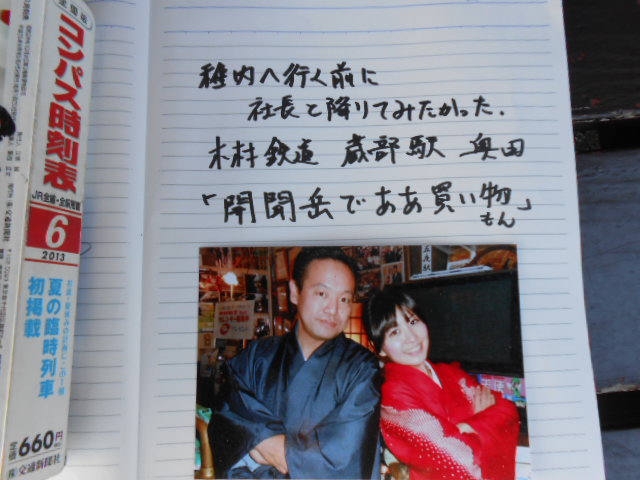 稚内へ行く前に
社長と降りてみたかった.
木村鉄道 蔵部駅 奥田
「開聞岳でああ買い物」
もん
コンパス時刻表
JR全線・全駅掲載
6
2013
夏の臨時列車
初掲載
定価660円
交通新聞社